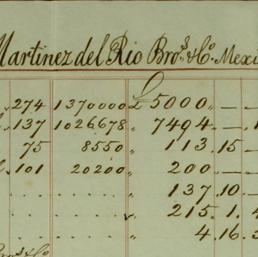 Martinez del Rio Bros & Co. Mexi
274 1370000 £ 5000 „ — „ —
137 1026678 „ 7494 „ — „ 1
75 8550 „ 113 „ 15 „ —
101 20200 „ 200 „ — „ —
„ 137 „ 10 „ —
„ 215 „ 1 „ 4
„ 4 „ 16 „ 3